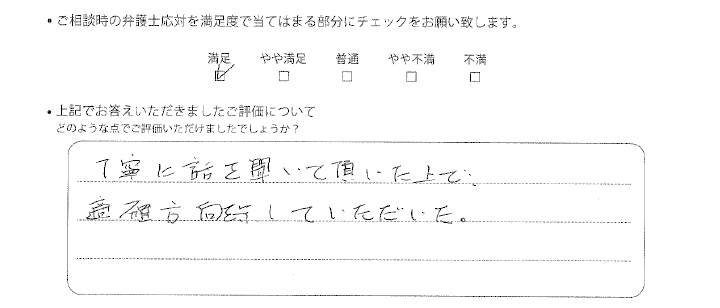 • ご相談時の弁護士応対を満足度で当てはまる部分にチェックをお願い致します。
満足 やや満足 普通 やや不満 不満
• 上記でお答えいただきましたご評価について
どのような点でご評価いただけましたでしょうか？
丁寧に話を聞いて頂いた上で、
適確方向許していただいた。